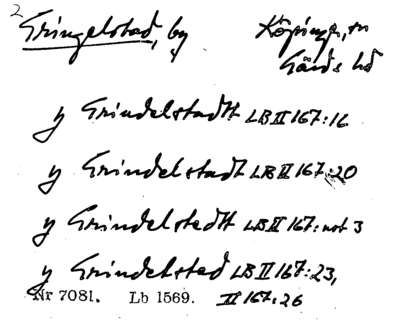 2
Gringelstad, by Köpinge, sn
Gärds hd
y Grindelstadtt LB II 167:16
y Grindelstadt LB II 167:20
y Grindelstedtt LB II 167: not 3
y Grindelsted LB II 167:23,
Nr 7081. Lb 1569. II 167:26